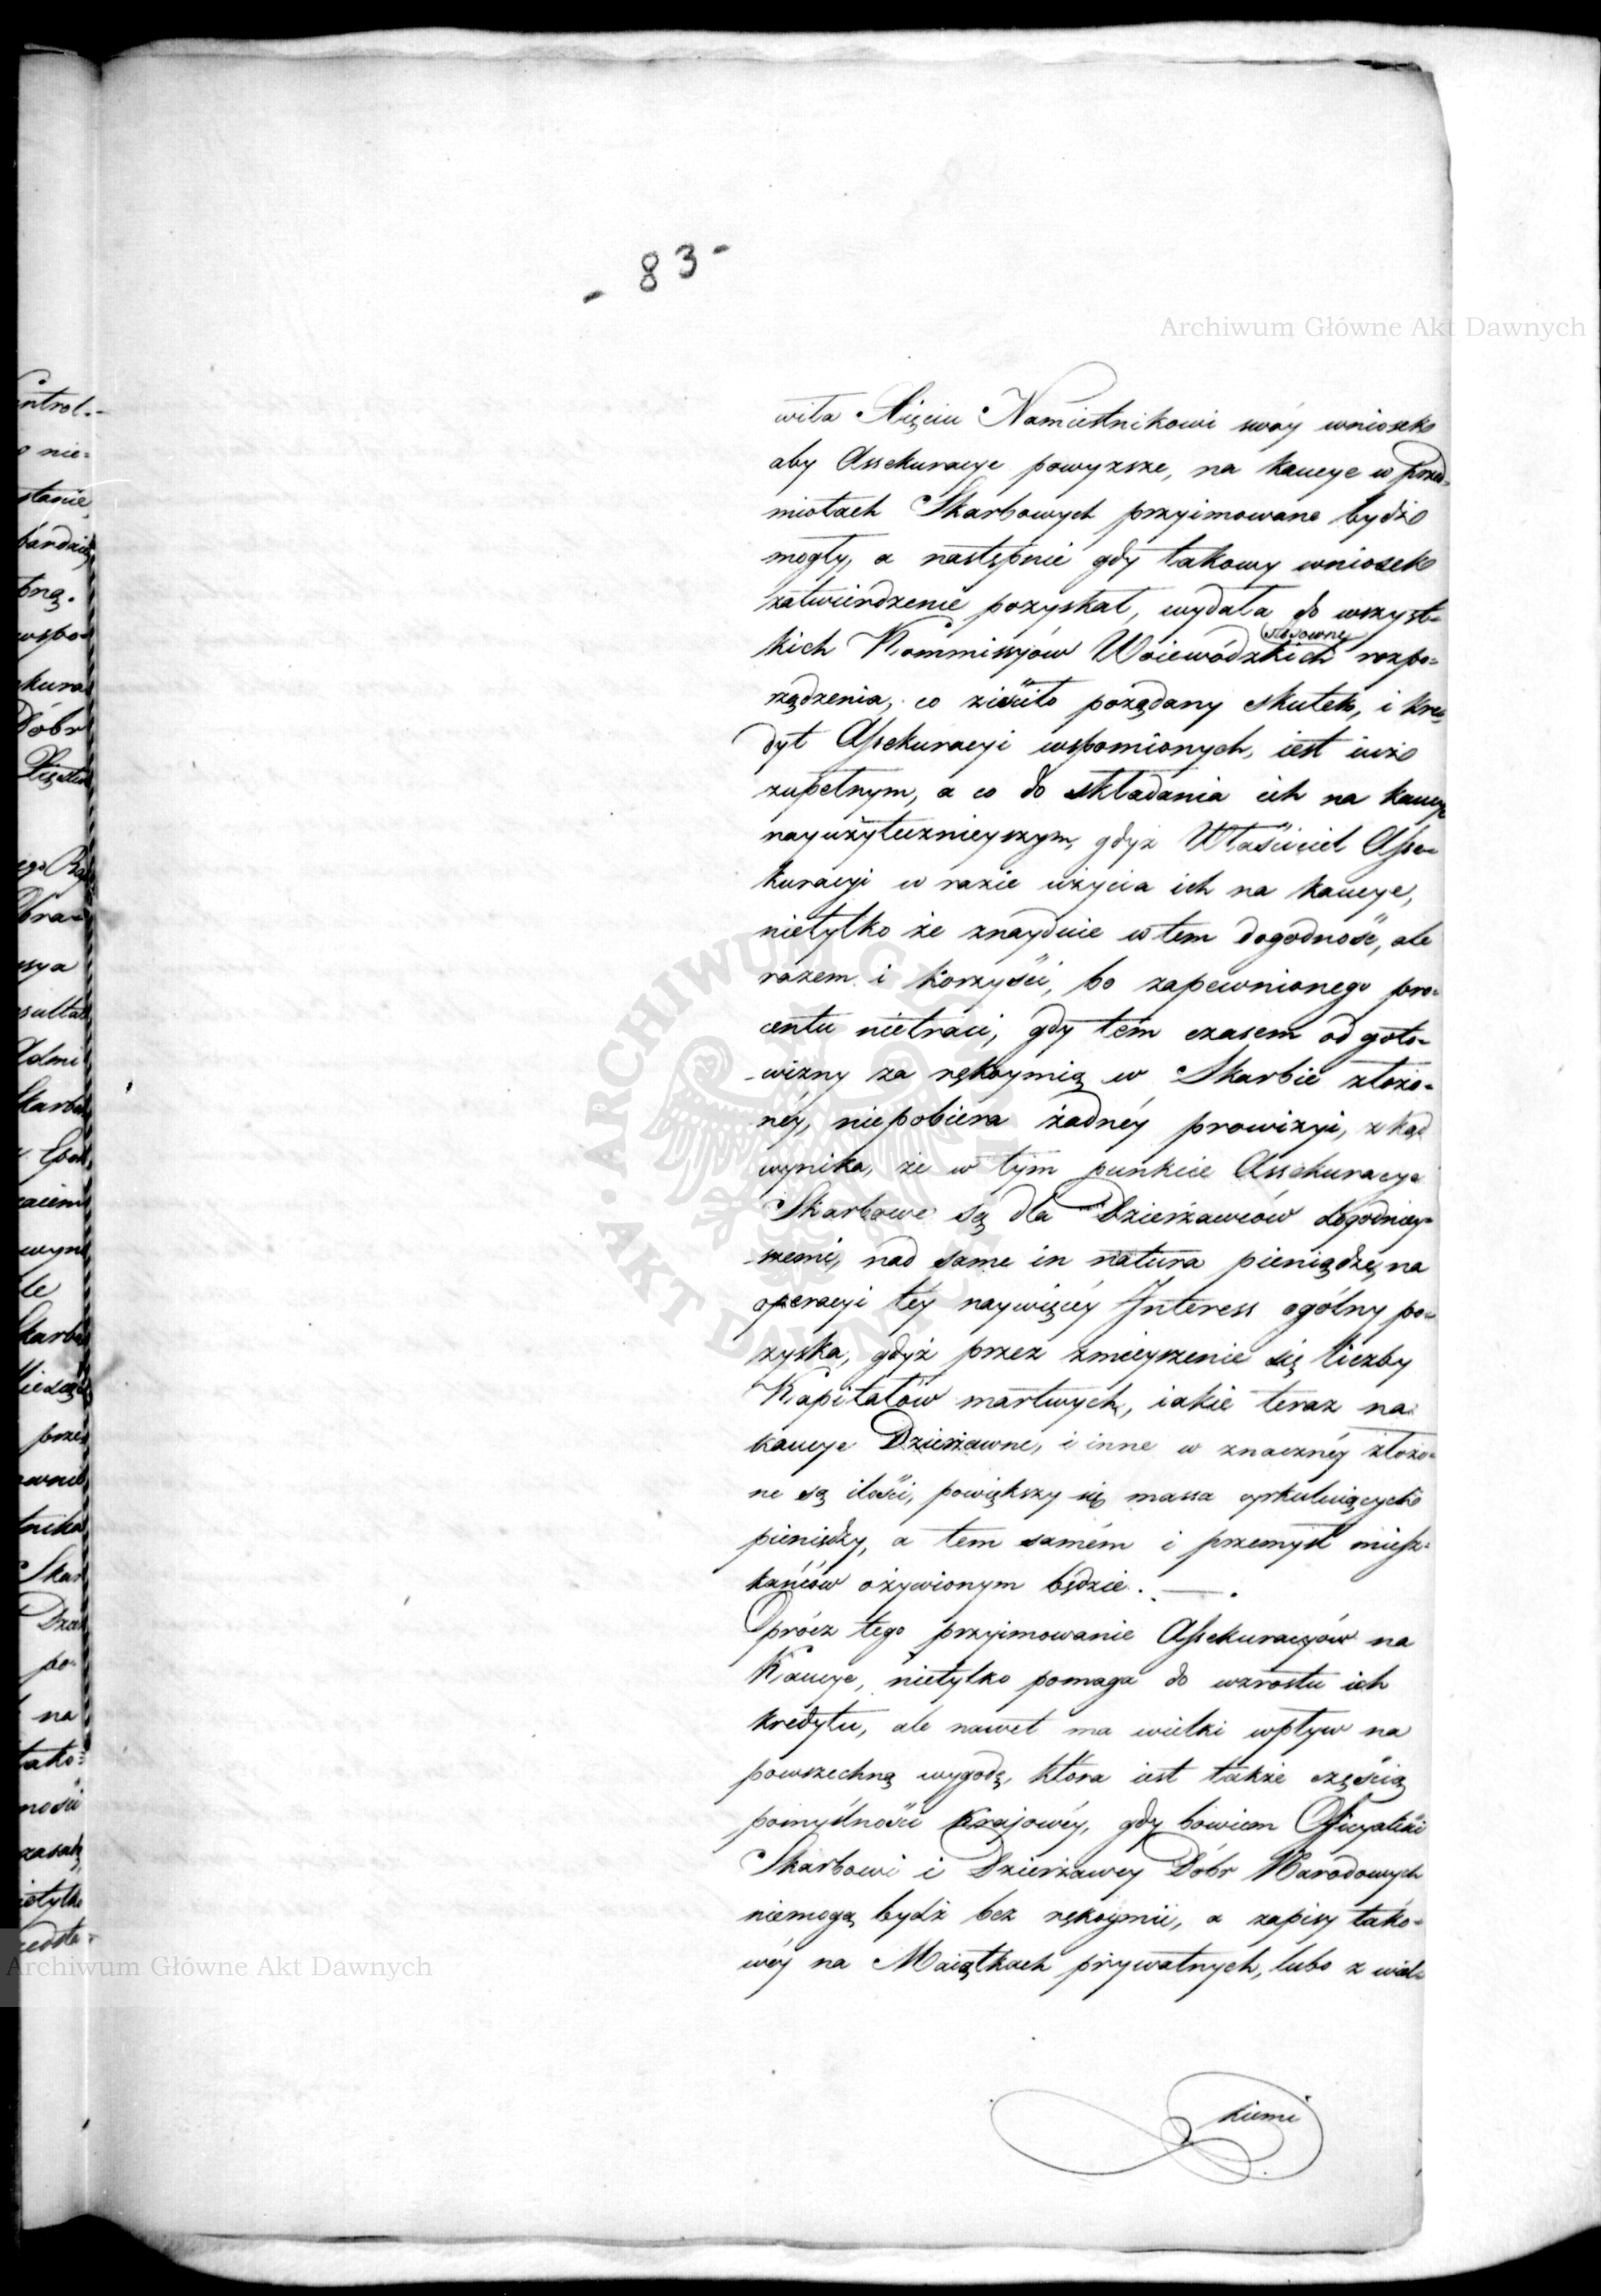 - 83 -
Archiwum Główne Akt Dawnych
wiła Xięciu Namiestnikowi swóy wniosek
aby Assekuracye powyższe, na kaucye w Przed-
miotach Skarbowych przyimowane bydź
mogły, a następnie gdy takowy wniosek
zatwierdzenie pozyskał, wydała do wszyst-
stosowne
kich Kommissyów Woiewódzkich rozpo-
rządzenia, co ziściło pożądany skutek, i kre-
dyt Assekuracyi wspomionych, iest iuż
zupełnym, a co do składania ich na kaucye
nayużytecznieyszym, gdyż Właściciel Asse-
kuracyi w razie użycia ich na kaucye,
nietylko że znayduie w tem dogodność, ale
razem i korzyści, bo zapewnionego pro-
centu nietraci, gdy tém czasem od goto-
wizny za rękoymią w Skarbie złożo-
néy, niepobiera żadnéy prowizyi, z kąd
wynika, że w tym punkcie Assekuracye
Skarbowe są dla Dzierżawców dogodniey-
szemi, nad same in natura pieniądze, na
operacyi téy naywięcéy Interess ogólny po-
zyska, gdyż przez zmieyszenie się liczby
Kapitałów martwych, iakie teraz na
kaucye Dzierżawne, i inne w znacznéy złożo-
ne są ilości, powiększy się massa cyrkuluiących
pieniędzy, a tem samém i przemysł miesz-
kańców ożywionym będzie. —
Oprócz tego przyimowanie Assekuracyów na
Kaucye, nietylko pomaga do wzrostu ich
kredytu, ale nawet ma wielki wpływ na
powszechną wygodę, która iest także częścią
pomyślności krajowéy, gdy bowiem Officyaliści
Skarbowi i Dzierżawcy Dóbr Narodowych
niemogą bydź bez rękoymii, a zapisy tako-
wéy na Maiątkach prywatnych, lubo z wiel-
kiemi
ntrol.-
o nie-
stanie
bardziey
bną.
wspo-
kura
Dóbr
Xięstw
Bra-
sya
Admi
Skarb
wyn
le
Skarb
prze
wnie
tnika
Skar
Dzier
po-
na
tako-
ności
zasad
ietylko
Archiwum Główne Akt Dawnych
ARCHIWUM GŁÓWNE AKT DAWNYCH